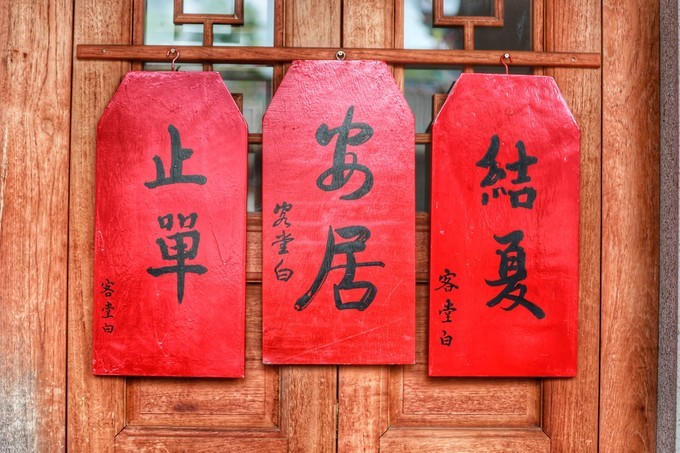 結夏
客堂白
安居
客堂白
止單
客堂白